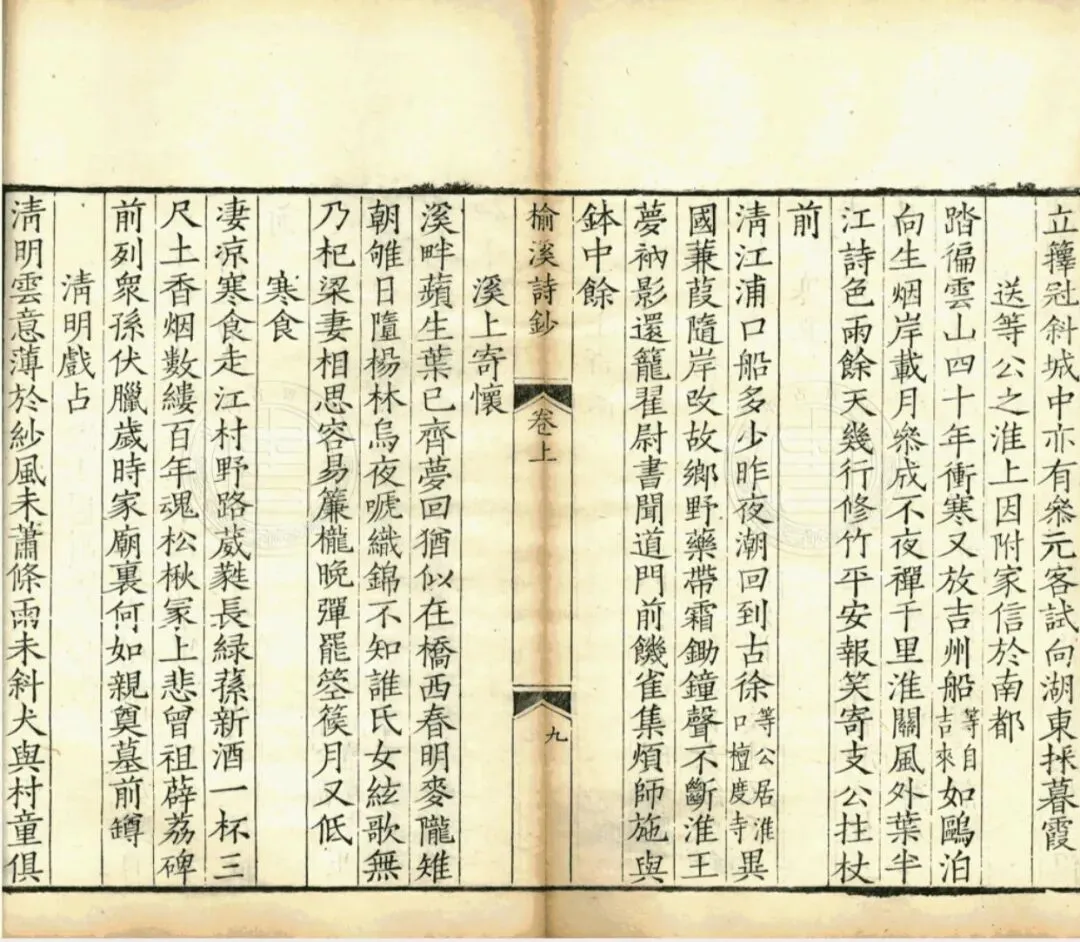 立籜冠斜城中亦有叅元客試向湖東採暮霞
送等公之淮上因附家信於南都
踏徧雲山四十年衝寒又放吉州船等自吉來如鷗泊
向生烟岸載月叅成不夜禪千里淮關風外葉半
江詩色雨餘天幾行修竹平安報笑寄支公拄杖
前
淸江浦口船多少昨夜潮回到古徐等公居淮口檀度寺異
國蒹葭隨岸改故鄉野藥帶霜鋤鐘聲不斷淮王
夢衲影還籠翟尉書聞道門前饑雀集煩師施與
鉢中餘
榆溪詩鈔 卷上 九
溪上寄懷
溪畔蘋生葉已齊夢回猶似在橋西春明麥隴雉
朝雊日隨楊林烏夜嗁織錦不知誰氏女絃歌無
乃杞梁妻相思容易簾櫳晚彈罷箜篌月又低
寒食
凄凉寒食走江村野路葳蕤長緑蓀新酒一杯三
尺土香烟数縷百年魂松楸冢上悲曾祖薜荔碑
前列衆孫伏臘歲時家廟裏何如親奠墓前罇
淸明戲占
淸明雲意薄於紗風未蕭條雨未斜犬與村童俱